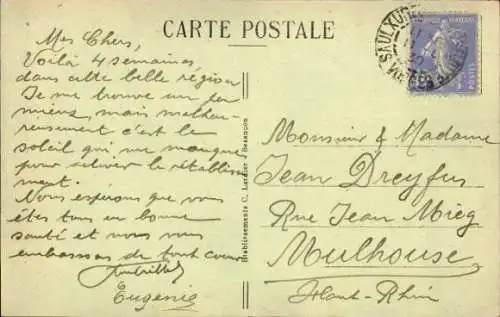 CARTE POSTALE
Mes Chers,
Voilà 4 semaines
dans cette belle région
Je me trouve un peu
mieux, mais malheu-
reusement c'est le
soleil qui me manque
pour activer le rétablisse
ment.
Nous espérons que vous
êtes tous en bonne
santé et nous vous
embrassons de tout coeur
Eugénie
Etablissements C. Lardier - Besançon
Monsieur & Madame
Jean Dreyfus
Rue Jean Mieg
Mulhouse
Haut-Rhin